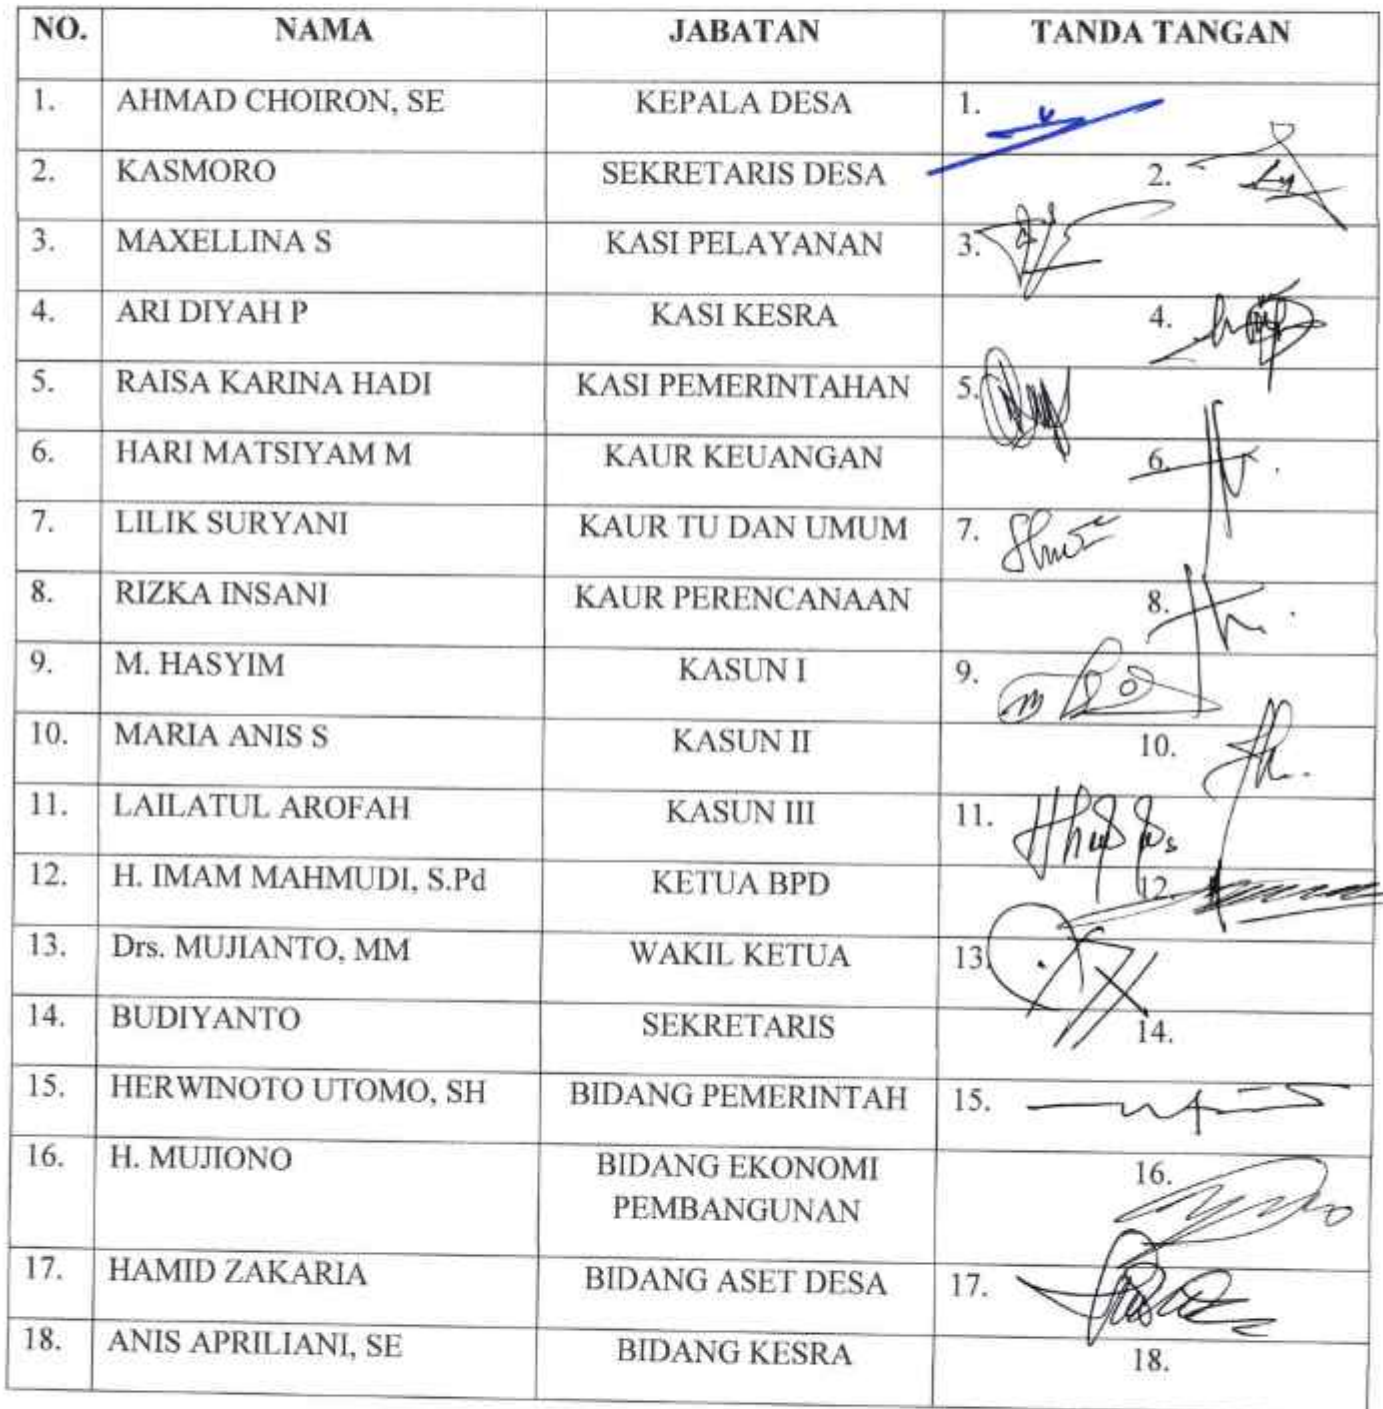 NO. NAMA JABATAN TANDA TANGAN
1. AHMAD CHOIRON, SE KEPALA DESA 1.
2. KASMORO SEKRETARIS DESA 2.
3. MAXELLINA S KASI PELAYANAN 3.
4. ARI DIYAH P KASI KESRA 4.
5. RAISA KARINA HADI KASI PEMERINTAHAN 5.
6. HARI MATSIYAM M KAUR KEUANGAN 6.
7. LILIK SURYANI KAUR TU DAN UMUM 7.
8. RIZKA INSANI KAUR PERENCANAAN 8.
9. M. HASYIM KASUN I 9.
10. MARIA ANIS S KASUN II 10.
11. LAILATUL AROFAH KASUN III 11.
12. H. IMAM MAHMUDI, S.Pd KETUA BPD 12.
13. Drs. MUJIANTO, MM WAKIL KETUA 13.
14. BUDIYANTO SEKRETARIS 14.
15. HERWINOTO UTOMO, SH BIDANG PEMERINTAH 15.
16. H. MUJIONO BIDANG EKONOMI 16.
PEMBANGUNAN
17. HAMID ZAKARIA BIDANG ASET DESA 17.
18. ANIS APRILIANI, SE BIDANG KESRA 18.